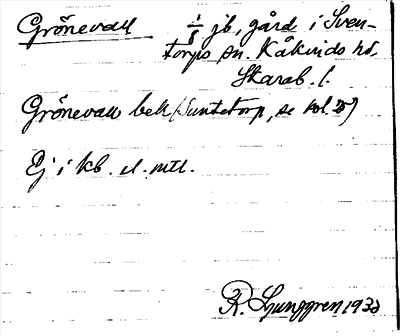 Grönevall 1/8 jb, gård i Sven-
torps sn. Kåkinds hd.
Skarab. l.
Grönevall bek (Suntetorp, se vol. 25)
Ej i kb. el. mtl.
R. Ljunggren 1932